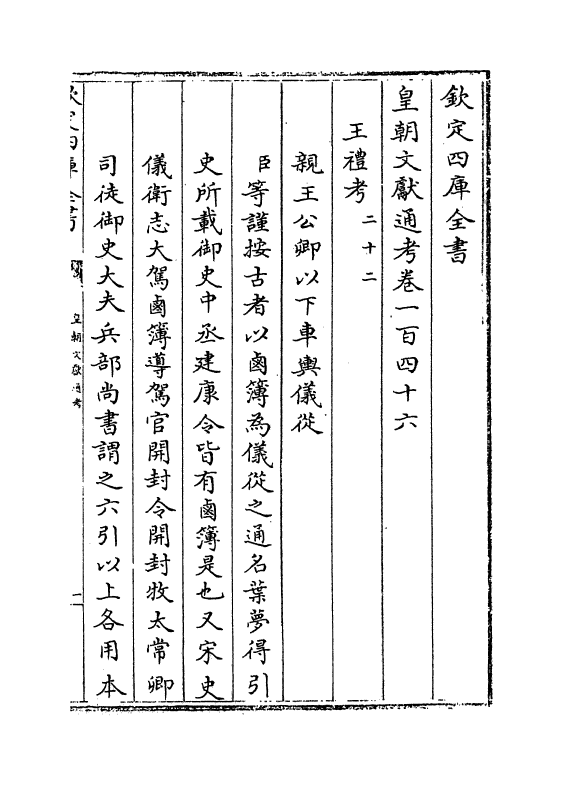 欽定四庫全書
皇朝文獻通考卷一百四十六
王禮考二十二
親王公卿以下車輿儀從
臣等謹按古者以鹵簿為儀從之通名葉夢得引
史所載御史中丞建康令皆有鹵簿是也又宋史
儀衛志大駕鹵簿導駕官開封令開封牧太常卿
司徒御史大夫兵部尚書謂之六引以上各用本
欽定四庫全書
皇朝文獻通考